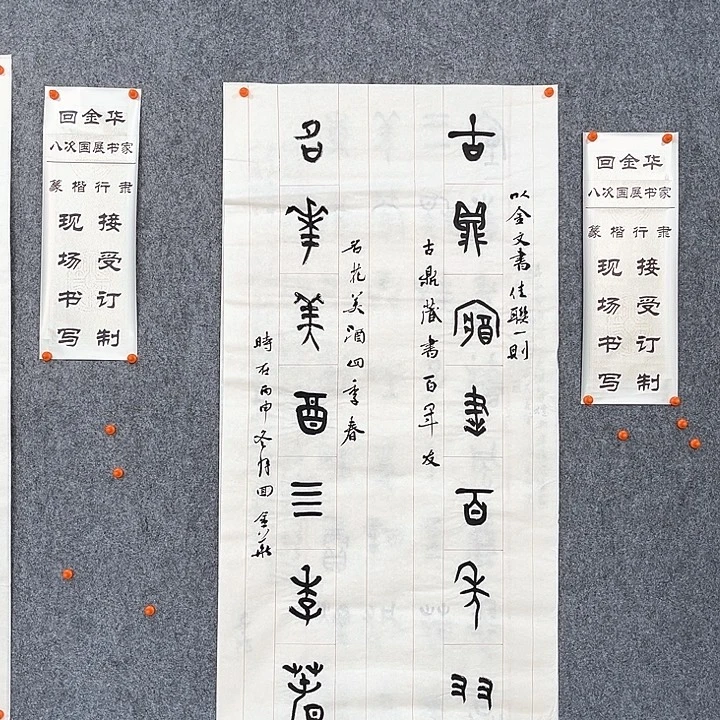 回金华
八次国展书家
篆 楷 行 隶
现场书写
接受订制
以金文書佳聯一則
古鼎藏書百年友
古鼎藏書百年友
名花美酒四季春
名華美酉亖季春
時在丙申冬月回金華
回金华
八次国展书家
篆 楷 行 隶
现场书写
接受订制